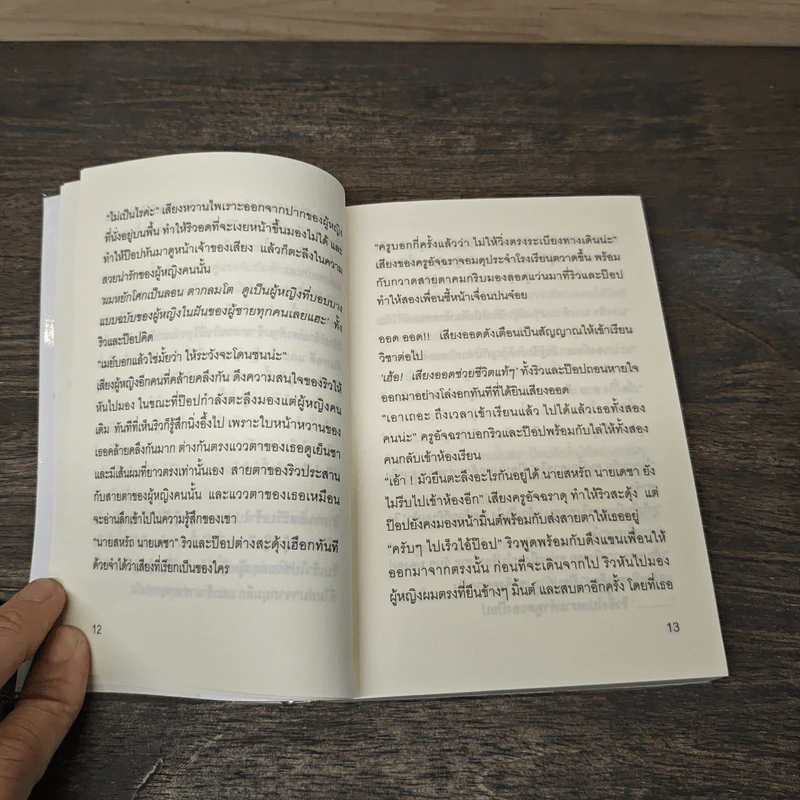 “ไม่เป็นไรค่ะ” เสียงหวานไพเราะออกจากปากของผู้หญิง
ที่นั่งอยู่บนพื้น ทำให้ริวอดที่จะเงยหน้าขึ้นมองไม่ได้ และ
ทำให้ป๊อปหันมาดูหน้าเจ้าของเสียง แล้วก็ตะลึงในความ
สวยน่ารักของผู้หญิงคนนั้น
‘ผมหยักโศกเป็นลอน ตากลมโต ดูเป็นผู้หญิงที่บอบบาง
แบบฉบับของผู้หญิงในฝันของผู้ชายทุกคนเลยแฮะ’ ทั้ง
ริวและป๊อปคิด
“เมย์บอกแล้วใช่มั้ยว่า ให้ระวังจะโดนชนน่ะ”
เสียงผู้หญิงอีกคนที่คล้ายคลึงกัน ดึงความสนใจของริวให้
หันไปมอง ในขณะที่ป๊อปกำลังตะลึงมองแต่ผู้หญิงคน
เดิม ทันทีที่เห็นริวก็รู้สึกนิ่งอึ้งไป เพราะใบหน้าหวานของ
เธอคล้ายคลึงกันมาก ต่างกันตรงแววตาของเธอดูเย็นชา
และมีเส้นผมที่ยาวตรงเท่านั้นเอง สายตาของริวประสาน
กับสายตาของผู้หญิงคนนั้น และแววตาของเธอเหมือน
จะอ่านลึกเข้าไปในความรู้สึกของเขา
“นายสหรัถ นายเดชา” ริวและป๊อปต่างสะดุ้งเฮือกทันที
ด้วยจำได้ว่าเสียงที่เรียกเป็นของใคร
12
“ครูบอกกี่ครั้งแล้วว่า ไม่ให้วิ่งตรงระเบียงทางเดินน่ะ”
เสียงของครูอัจฉราจอมดุประจำโรงเรียนตวาดขึ้น พร้อม
กับกวาดสายตาคมกริบมองลอดแว่นมาที่ริวและป๊อป
ทำให้สองเพื่อนซี้หน้าเจื่อนปนจ๋อย
ออด ออด!! เสียงออดดังเตือนเป็นสัญญาณให้เข้าเรียน
วิชาต่อไป
‘เฮ้อ! เสียงออดช่วยชีวิตแท้ๆ’ ทั้งริวและป๊อปถอนหายใจ
ออกมาอย่างโล่งอกทันทีที่ได้ยินเสียงออด
“เอาเถอะ ถึงเวลาเข้าเรียนแล้ว ไปได้แล้วเธอทั้งสอง
คนน่ะ” ครูอัจฉราบอกริวและป๊อปพร้อมกับไล่ให้ทั้งสอง
คนกลับเข้าห้องเรียน
“เอ้า ! มัวยืนตะลึงอะไรกันอยู่ได้ นายสหรัถ นายเดชา ยัง
ไม่รีบไปเข้าห้องอีก” เสียงครูอัจฉราดุ ทำให้ริวสะดุ้ง แต่
ป๊อปยังคงมองหน้ามิ้นต์พร้อมกับส่งสายตาให้เธออยู่
“ครับๆ ไปเร็วไอ้ป๊อป” ริวพูดพร้อมกับดึงแขนเพื่อนให้
ออกมาจากตรงนั้น ก่อนที่จะเดินจากไป ริวหันไปมอง
ผู้หญิงผมตรงที่ยืนข้างๆ มิ้นต์ และสบตาอีกครั้ง โดยที่เธอ
13